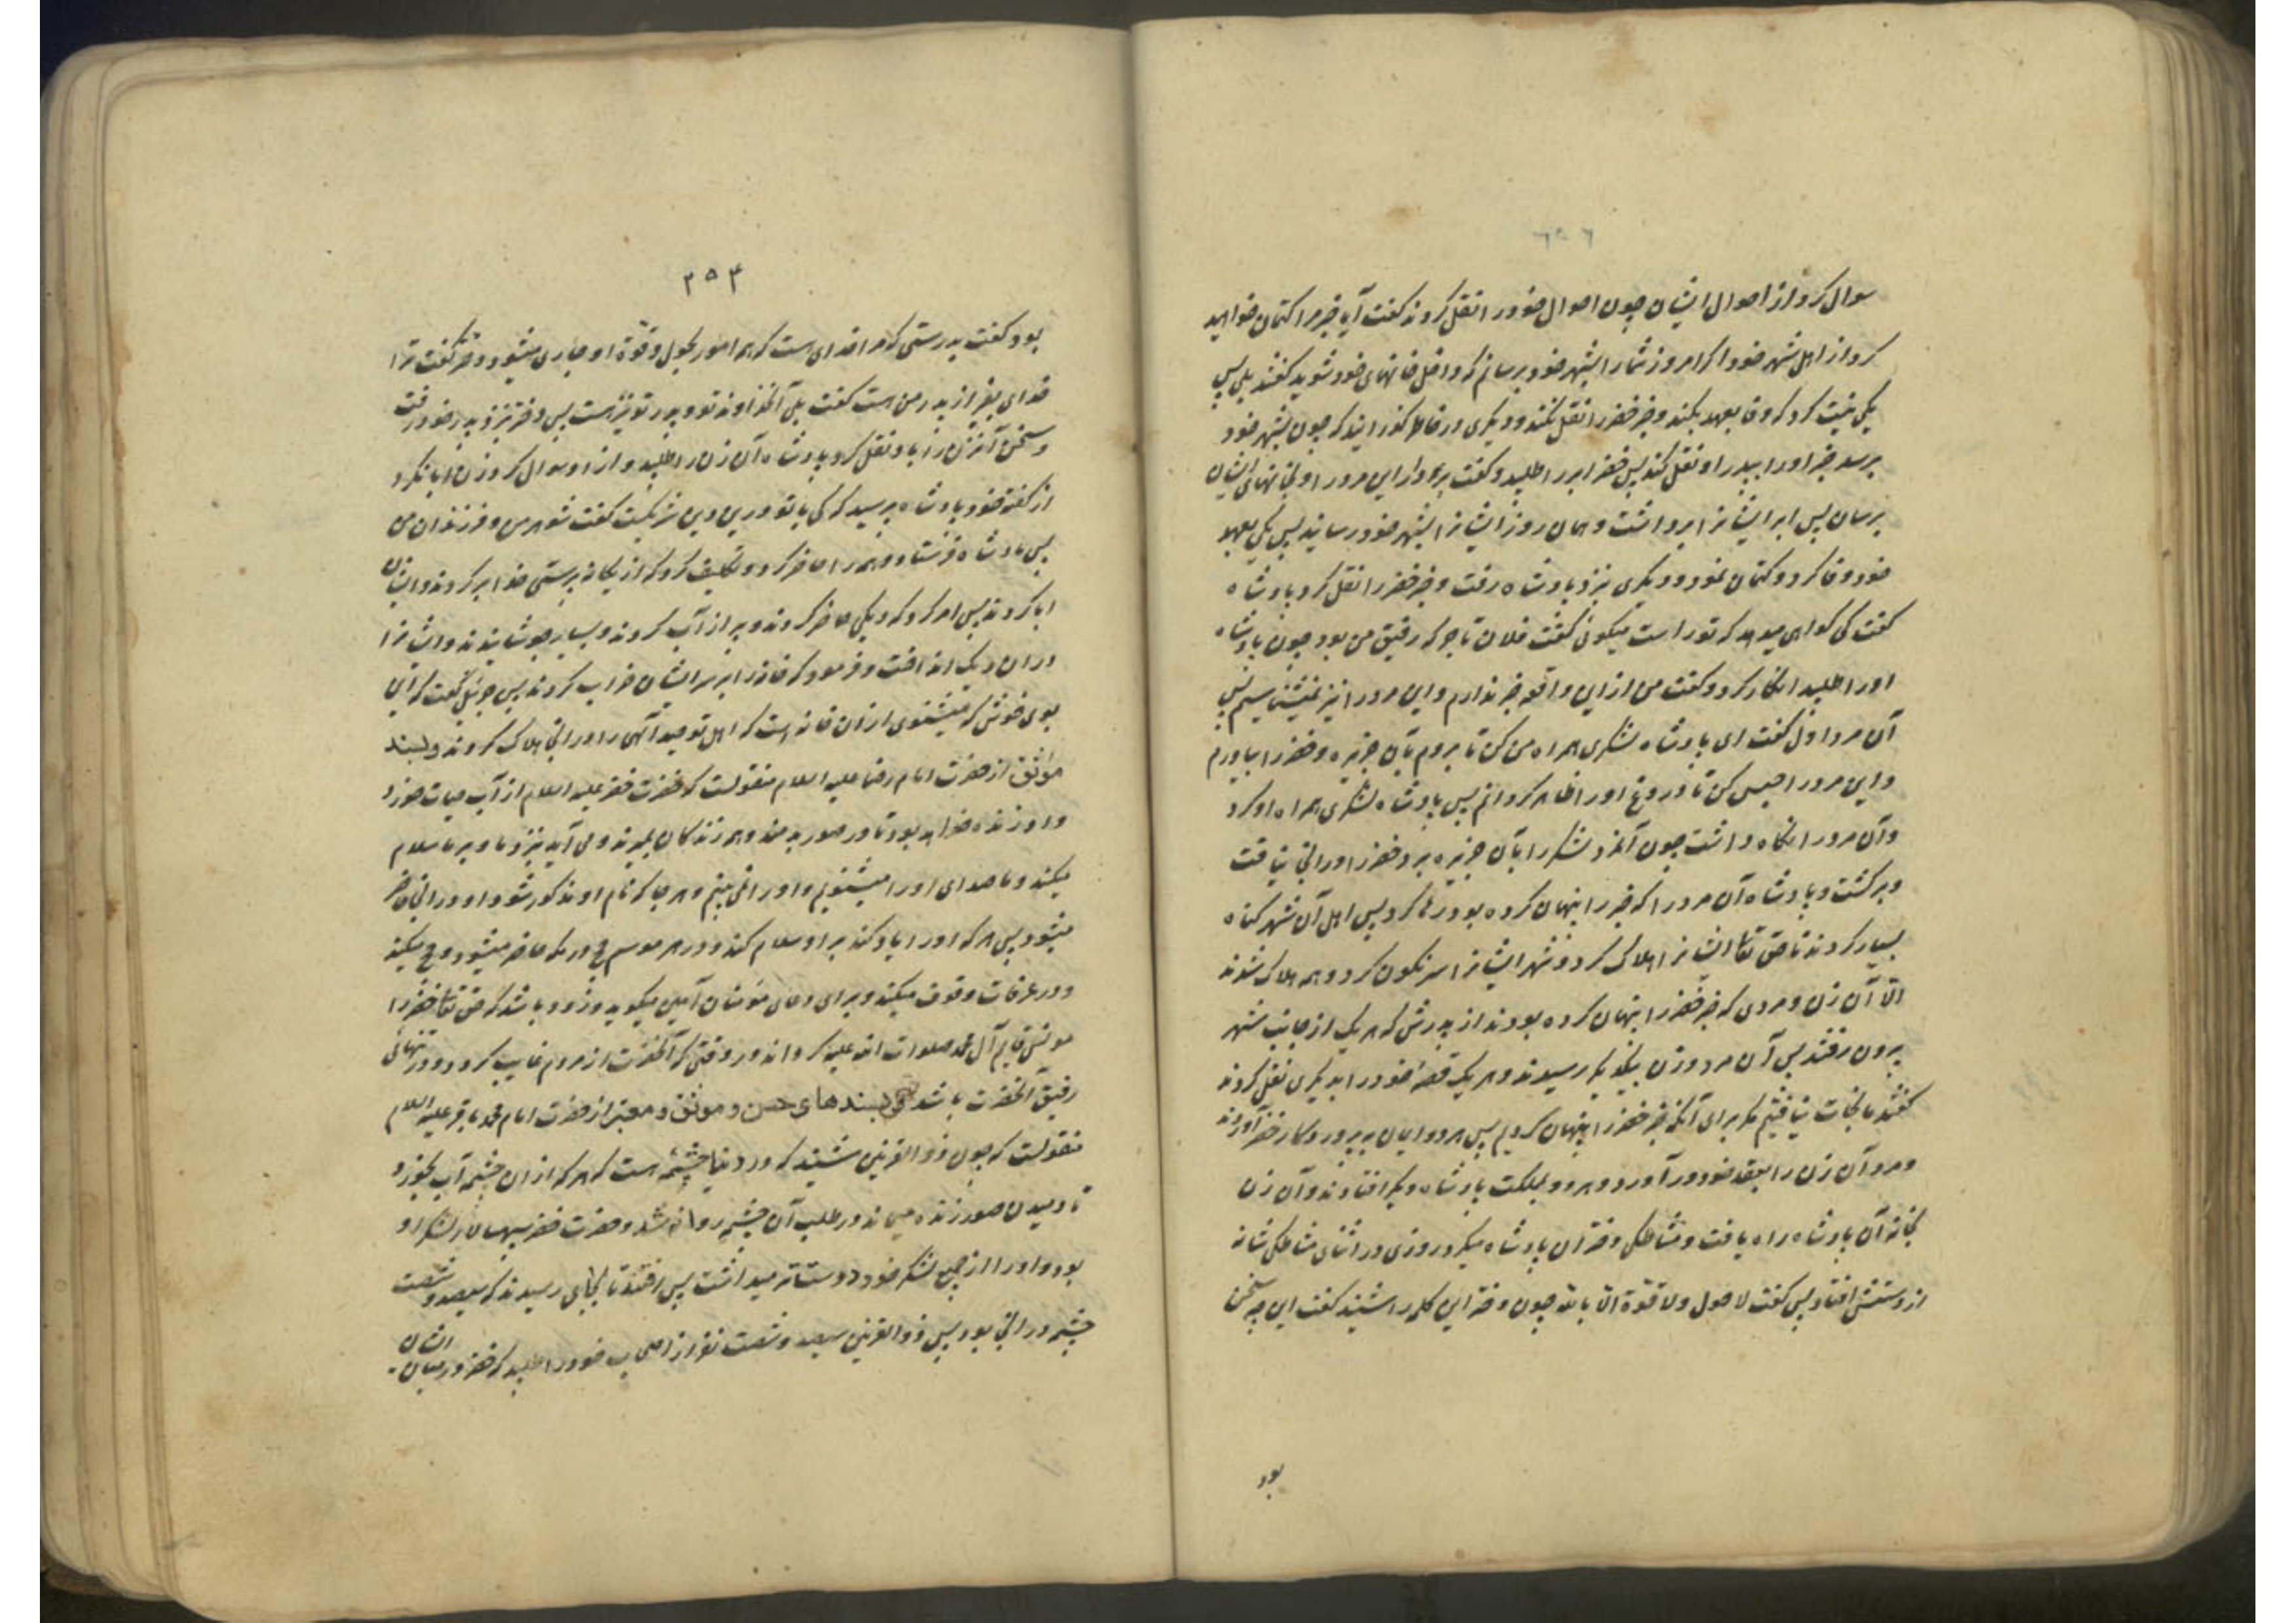 سوال کرد از احوال ایشان چون احوال خود را نقل کردند گفت آیا خبر مرا کتمان خواهید
کرد از اهل شهر خود اگر امروز شما را بشهر خود برسانم که داخل خانهای خود شوید گفتند بلی پس
یکی نیت کرد که وفا بعهد بکند و خبر خضر را نقل نکند و دیگری در خاطر گذرانید که چون بشهر خود
برسد خبر او را بپدر او نقل کند پس خضر ابر را طلبید و گفت بردار این دو مرد را و بخانهای ایشان
برسان پس ابر ایشانرا برداشت و همان روز ایشانرا بشهر خود رسانید پس یکی بعهد
خود وفا کرد و کتمان نمود و دیگری نزد پادشاه رفت و خبر خضر را نقل کرد پادشاه
گفت کی گواهی میدهد که تو راست میگوئی گفت فلان تاجر که رفیق من بود چون پادشاه
او را طلبید انکار کرد و گفت من از این واقعه خبر ندارم و این مرد را نیز نمیشناسم پس
آن مرد اول گفت ای پادشاه لشکری همراه من کن تا بروم بآن جزیره و خضر را بیاورم
و این مرد را حبس کن تا دروغ او را ظاهر گردانم پس پادشاه لشکری همراه او کرد
و آن مرد را نگاه داشت چون آنمرد لشکر را بآن جزیره برد خضر را در انجا نیافت
و برگشت و پادشاه آن مرد را که خبر را پنهان کرده بود رها کرد پس اهل آن شهر گناه
بسیار کردند تا حق تعالی ایشانرا هلاک کرد و شهر ایشانرا سرنگون کرد و همه هلاک شدند
الّا آن زن و مردی که خبر خضر را پنهان کرده بودند از پدرش که هر یک از جانب شهر
برون رفتند پس آن مرد و زن بیکدیگر رسیدند و هر یک قصهٔ خود را بدیگری نقل کردند
گفتند ما نجات نیافتیم مگر برای آنکه خبر خضر را پنهان کردیم پس هر دو ایمان بپروردگار خضر آوردند
و مرد آن زن را بعقد خود در آورد و هر دو بمملکت پادشاه دیگر افتادند و آن زن
بخانه آن پادشاه راه یافت و مشاطگی دختر آن پادشاه میکرد روزی در اثنای مشاطگی شانه
از دستش افتاد پس گفت لا حول ولا قوّة الّا بالله چون دختر این کلمه را شنید گفت این چه سخن
بود
۲۵۴
بود گفت بدرستی که مرا خدای است که همه امور بحول و قوّة او جاری میشود دختر گفت ترا
خدای بغیر از پدر من هست گفت بلی آنخداوند تو و پدر تو نیز هست پس دختر نزد پدر خود رفت
و سخن آنزن را باو نقل کرد پادشاه آن زن را طلبید و از او سوال کرد زن ابا نکرد
از گفته خود پادشاه پرسید که کی با تو در این دین شریکست گفت شوهر من و فرزندان من
پس پادشاه فرستاد و همه را حاضر کرد و تکلیف کرد که از یگانه پرستی خدا برگردند و ایشان
ابا کردند پس امر کرد که دیگی حاضر کردند و پر از آب کردند و بسیار جوشانیدند و ایشانرا
در ان دیگ انداخت و فرمود که خانه را بر سر ایشان خراب کردند پس جبرئیل گفت که این
بوی خوش که میشنوی از ان خانه است که اهل توحید آلهی را در انجا هلاک کردند و بسند
موثق از حضرت امام رضا علیه السلام منقولست که حضرت خضر علیه السلام از آب حیات خورد
و او زنده خواهد بود تا در صور بدمند و همه زندگان بمیرند و می آید بنزد ما و بر ما سلام
میکند و ما صدای او را میشنویم و او را نمی بینیم و هر جا که نام او مذکور شود او در انجا حاضر
میشود پس هر که او را یاد کند بر او سلام کند و در هر موسم حج در مکه حاضر میشود و حج میکند
و در عرفات وقوف میکند و برای دعای مؤمنان آمین میگوید و زود باشد که حق تعالی خضر را
مونس قایم آل محمد صلوات الله علیه گرداند در وقتی که آنحضرت از مردم غایب گردد و در تنهائی
رفیق آنحضرت باشد و بسندهای حسن و موثق و معتبر از حضرت امام محمد باقر علیه السلام
منقولست که چون ذو القرنین شنید که در دنیا چشمه هست که هر که از ان چشمه آب بخورد
تا دمیدن صور زنده میماند در طلب آن چشمه روانه شد و حضرت خضر سپهسالار لشکر او
بود و او را از جمیع لشکر خود دوستتر میداشت پس رفتند تا بجای رسیدند که سیصد و شصت
چشمه در انجا بود پس ذو القرنین سیصد و شصت نفر از اصحاب خود را طلبید که خضر در میان ایشان